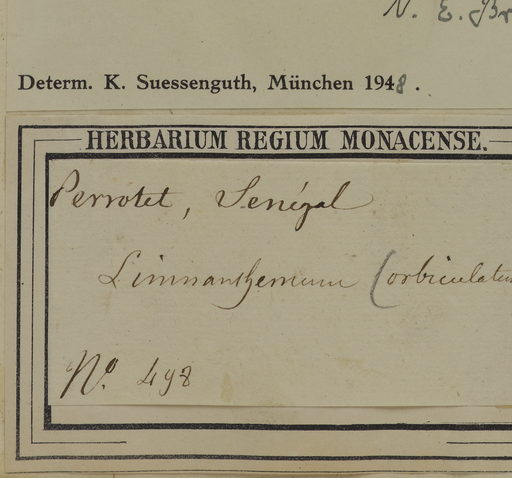 N. E. Br
Determ. K. Suessenguth, München 1948.
HERBARIUM REGIUM MONACENSE.
Perrotet, Senégal
Limnanthemum (orbiculatum
No. 498